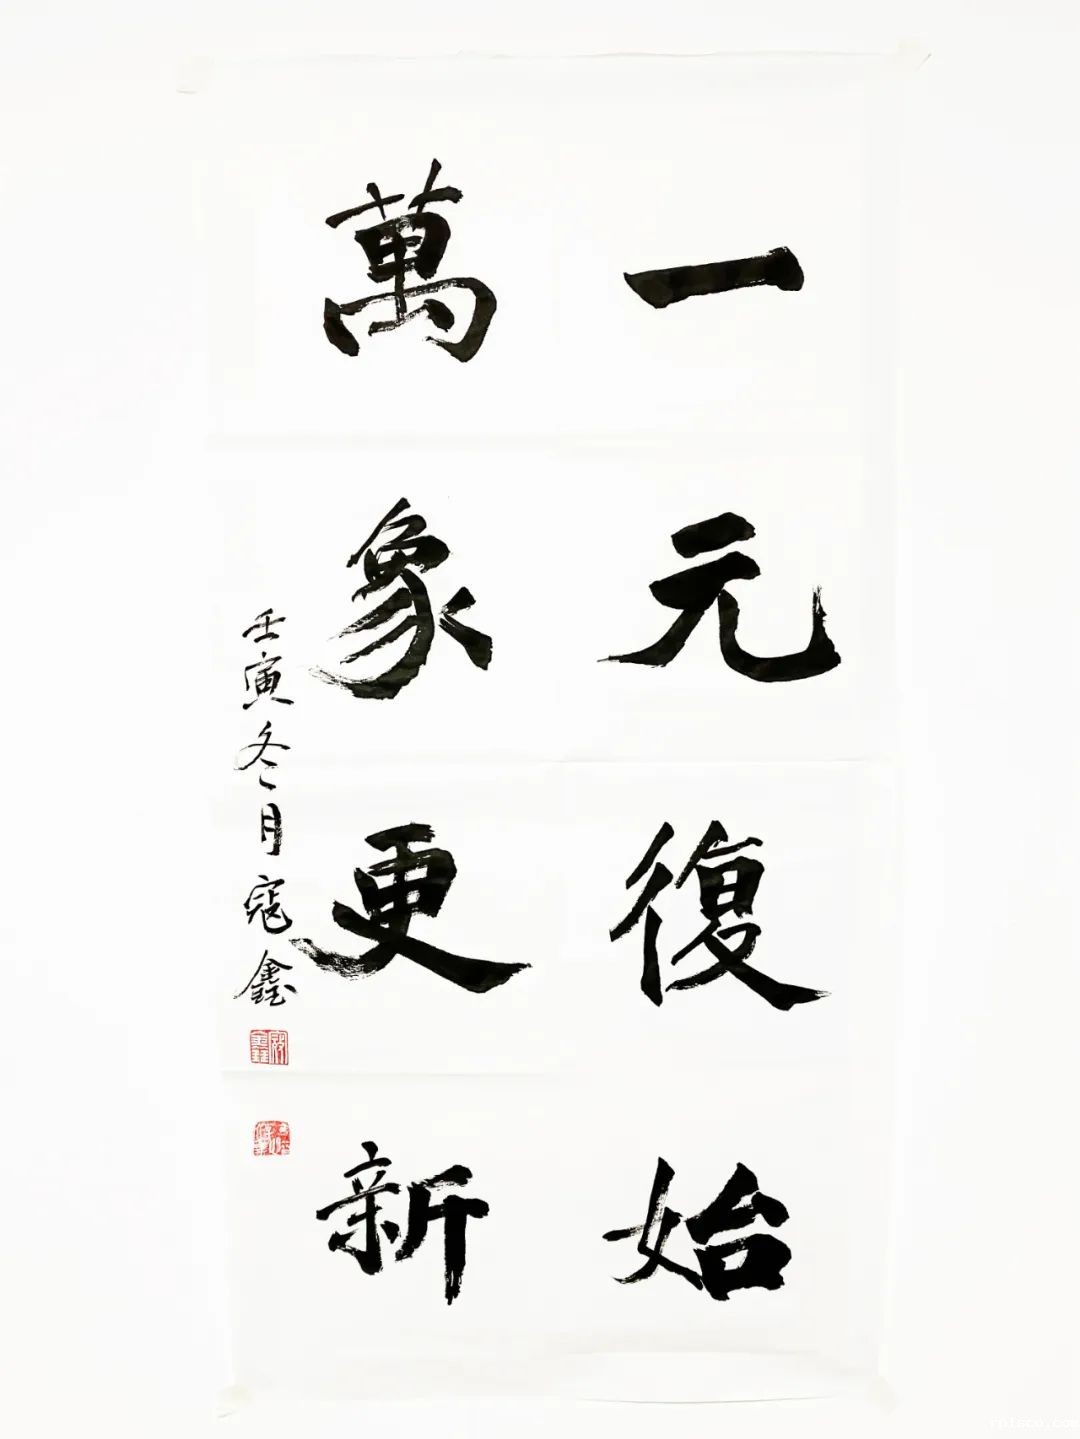 一元復始
萬象更新
壬寅冬月寇鑫